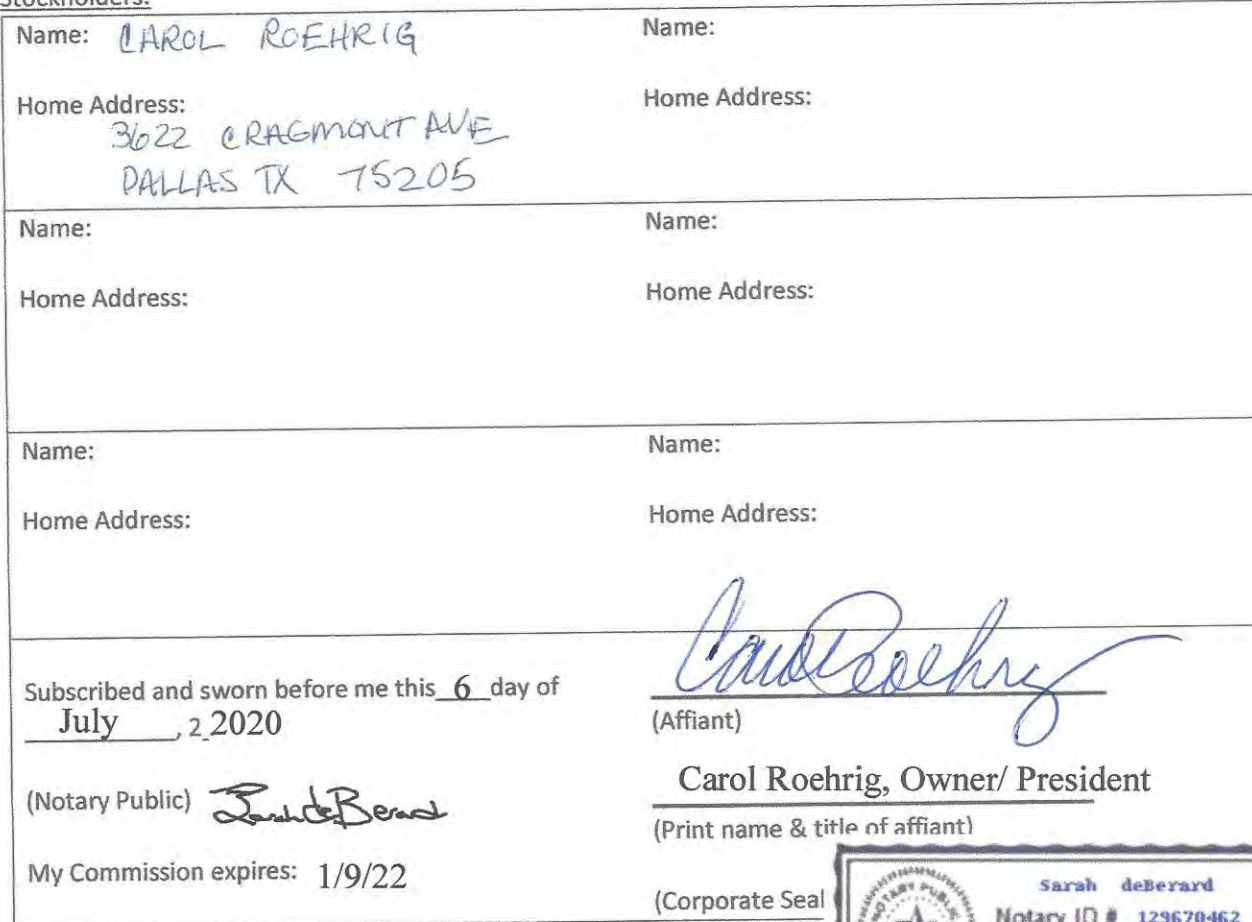 Stockholders:
Name: CAROL ROEHRIG
Home Address:
3622 CRAGMONT AVE
DALLAS TX 75205
Name:
Home Address:
Name:
Home Address:
Name:
Home Address:
Name:
Home Address:
Name:
Home Address:
Subscribed and sworn before me this 6 day of
July, 2 2020
(Notary Public) Sarah deBerard
My Commission expires: 1/9/22
Carol Roehrig
(Affiant)
Carol Roehrig, Owner/ President
(Print name & title of affiant)
(Corporate Seal
NOTARY PUBLIC
Sarah deBerard
Notary ID # 129670462